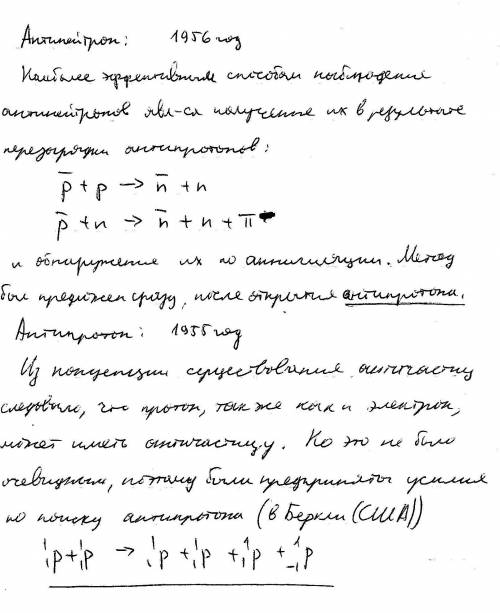 Антинейтрон: 1956 год
Наиболее эффективным способом наблюдение
антинейтронов явл-ся получение их в результате
перезарядки антипротонов:
p̅ + p → n̅ + n
p̅ + n → n̅ + n + π⁻
и обнаружение их по аннигиляции. Метод
был предложен сразу, после открытия антипротона.
Антипротон: 1955 год
Из концепции существования античастиц
следовало, что протон, так же как и электрон,
может иметь античастицу. Но это не было
очевидным, поэтому были предприняты усилия
по поиску антипротона (в Беркли (США))
¹₁p + ¹₁p → ¹₁p + ¹₁p + ¹₁p + ¹₋₁p